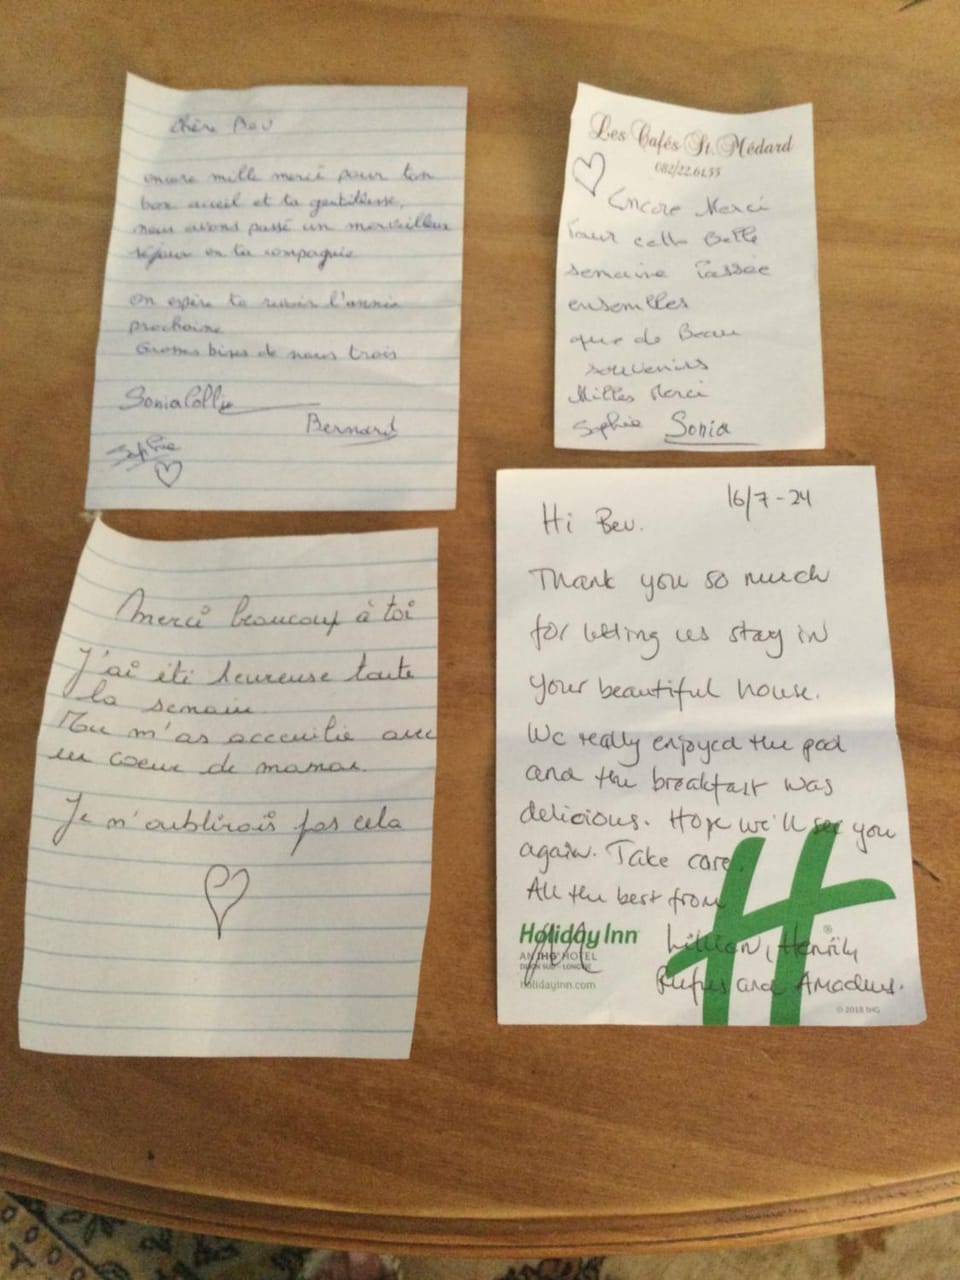 chère Bev
encore mille merci pour ton
bon acueil et ta gentillesse,
nous avons passé un merveilleux
séjour en ta compagnie
on espère te revoir l'année
prochaine
Grosses bises de nous trois
Sonia Collie
Bernard
Sophie
Les Cafés St. Médard
082/22.61.55
Encore Merci
Pour cette Belle
semaine Passée
ensembles
que de Beau
souvenirs
Milles Merci
Sophie Sonia
Merci beaucoup à toi
J'ai été heureuse toute
la semaine
Tu m'as acceuilie avec
un coeur de maman.
Je n'oublirais pas cela
16/7-24
Hi Bev.
Thank you so much
for letting us stay in
your beautiful house.
We really enjoyed the pool
and the breakfast was
delicious. Hope we'll see you
again. Take care.
All the best from
Lillian, Henrik,
Rufus and Amadeus.
Holiday Inn®
AN IHG® HOTEL
DIJON SUD - LONGVIC
holidayinn.com
© 2018 IHG